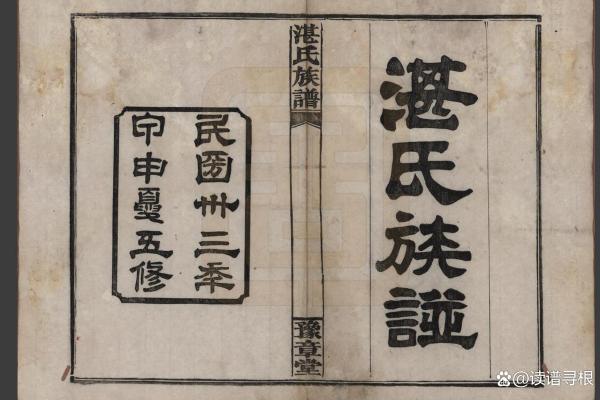 湛氏族諩
湛氏族譜
豫章堂
民圀卅三秊
甲申夏五修
@读谱寻根